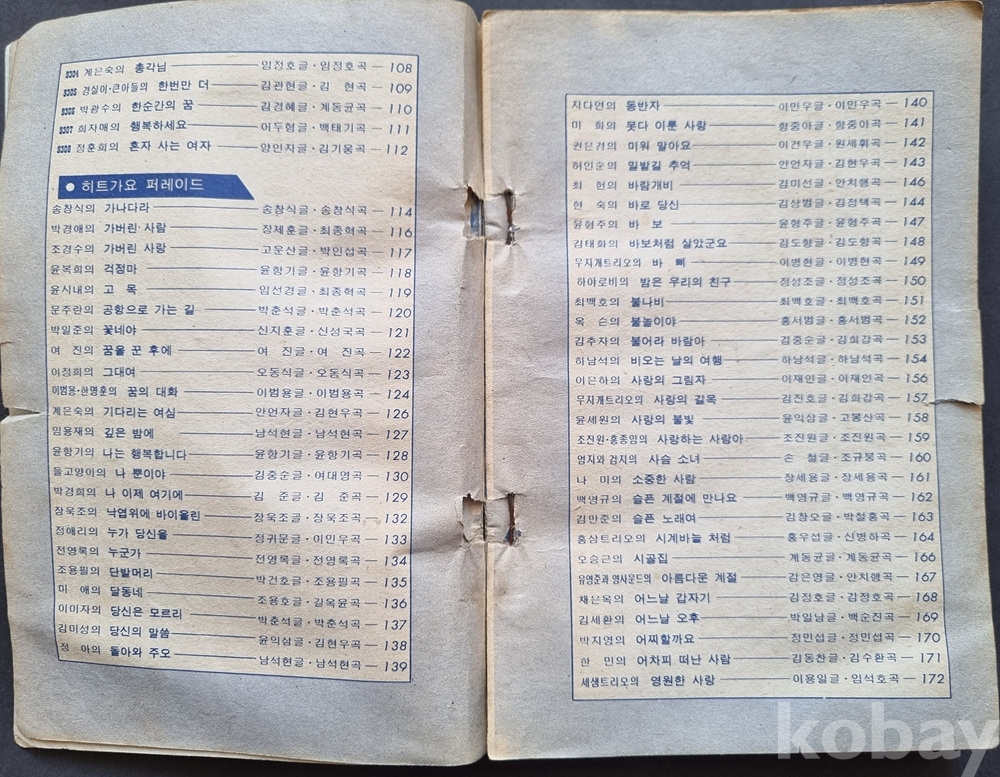 8304 계은숙의 총각님 임정호글·임정호곡 — 108
8305 경실이·큰아들의 한번만 더 김관현글·김 현곡 — 109
8306 박광수의 한순간의 꿈 김경혜글·계동균곡 — 110
8307 희자매의 행복하세요 어두형글·백태기곡 — 111
8308 정훈희의 혼자 사는 여자 양인자글·김기웅곡 — 112
● 히트가요 퍼레이드
송창식의 가나다라 송창식글·송창식곡 — 114
박경애의 가버린 사람 장제훈글·최종혁곡 — 116
조경수의 가버린 사랑 고운산글·박인섭곡 — 117
윤복희의 걱정마 윤항기글·윤항기곡 — 118
윤시내의 고 목 임선경글·최종혁곡 — 119
문주란의 공항으로 가는 길 박춘석글·박춘석곡 — 120
박일준의 꽃네야 신지훈글·신성국곡 — 121
여 진의 꿈을 꾼 후에 여 진글·여 진곡 — 122
이정희의 그대여 오동식글·오동식곡 — 123
이범용·한명훈의 꿈의 대화 이범용글·이범용곡 — 124
계은숙의 기다리는 여심 안언자글·김현우곡 — 126
임용재의 깊은 밤에 남석현글·남석현곡 — 127
윤항기의 나는 행복합니다 윤항기글·윤항기곡 — 128
들고양이의 나 뿐이야 김중순글·여대영곡 — 130
박경희의 나 이제 여기에 김 준글·김 준곡 — 129
장욱조의 낙엽위에 바이올린 장욱조글·장욱조곡 — 132
정애리의 누가 당신을 정귀문글·이민우곡 — 133
전영록의 누군가 전영록글·전영록곡 — 134
조용필의 단발머리 박건호글·조용필곡 — 135
미 애의 달동네 조용호글·길옥윤곡 — 136
이미자의 당신은 모르리 박춘석글·박춘석곡 — 137
김미성의 당신의 말씀 윤익삼글·김현우곡 — 138
정 아의 돌아와 주오 남석현글·남석현곡 — 139
지다연의 동반자 이민우글·이민우곡 — 140
미 희의 못다 이룬 사랑 함중아글·함중아곡 — 141
권은경의 미워 말아요 이건우글·원세휘곡 — 142
허인순의 밀밭길 추억 안언자글·김현우곡 — 143
최 헌의 바람개비 김미선글·안치행곡 — 146
현 숙의 바로 당신 김상범글·김정택곡 — 144
윤형주의 바 보 윤형주글·윤형주곡 — 147
김태화의 바보처럼 살았군요 김도향글·김도향곡 — 148
무지개트리오의 바 삐 이병현글·이병현곡 — 149
하야로비의 밤은 우리의 친구 정성조글·정성조곡 — 150
최백호의 불나비 최백호글·최백호곡 — 151
옥 슨의 불놀이야 홍서범글·홍서범곡 — 152
김추자의 불어라 바람아 김중순글·김희갑곡 — 153
하남석의 비오는 날의 여행 하남석글·하남석곡 — 154
이은하의 사랑의 그림자 이재인글·이재인곡 — 156
무지개트리오의 사랑의 길목 김진호글·김희갑곡 — 157
윤세원의 사랑의 불빛 윤익삼글·고봉산곡 — 158
조진원·홍종임의 사랑하는 사람아 조진원글·조진원곡 — 159
엄지와 검지의 사슴 소녀 손 철글·조규봉곡 — 160
나 미의 소중한 사람 장세용글·장세용곡 — 161
백영규의 슬픈 계절에 만나요 백영규글·백영규곡 — 162
김만준의 슬픈 노래여 김창오글·박철홍곡 — 163
홍삼트리오의 시계바늘 처럼 홍우섭글·신병하곡 — 164
오승근의 시골집 계동균글·계동균곡 — 166
유영준과 영사운드의 아름다운 계절 감은영글·안치행곡 — 167
채은옥의 어느날 갑자기 김정호글·김정호곡 — 168
김세환의 어느날 오후 박일남글·백순진곡 — 169
박지영의 어찌할까요 정민섭글·정민섭곡 — 170
한 민의 어차피 떠난 사람 김동찬글·김수환곡 — 171
세샘트리오의 영원한 사랑 이용일글·임석호곡 — 172
kobay